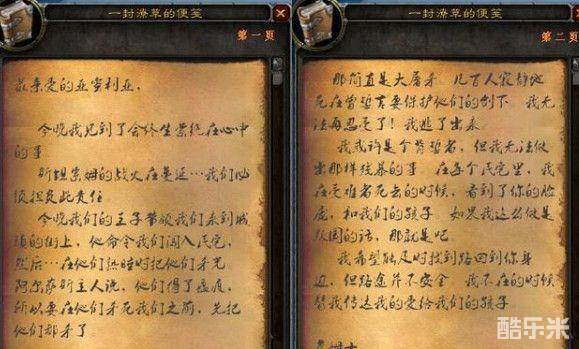 一封潦草的便笺
第一页
最亲爱的亚蜜利亚，
今晚我见到了会终生萦绕在心中
的事
斯坦索姆的战火在蔓延…我们必
须担负此责任
今晚我们的王子带领我们来到城
镇的街上，他命令我们闯入民宅，
然后…在他们熟睡时把他们杀光
阿尔萨斯主人说，他们得了瘟疫，
所以要在他们杀死我们之前，先把
他们都杀了
一封潦草的便笺
第二页
那简直是大屠杀。几百人寂静地
死在曾誓言要保护他们的剑下 我无
法再忍受了！我逃了出来
我或许是个背誓者，但我无法做
出那样残暴的事 在每个民宅里，我
在受难者死去的时候，看到了你的脸
庞，和我们的孩子 如果我这么做是
叛国的话，那就是吧
我希望能及时找到路回到你身
边，但路途并不安全 我不在的时候
替我传达我的爱给我们的孩子
姆士
酷乐米